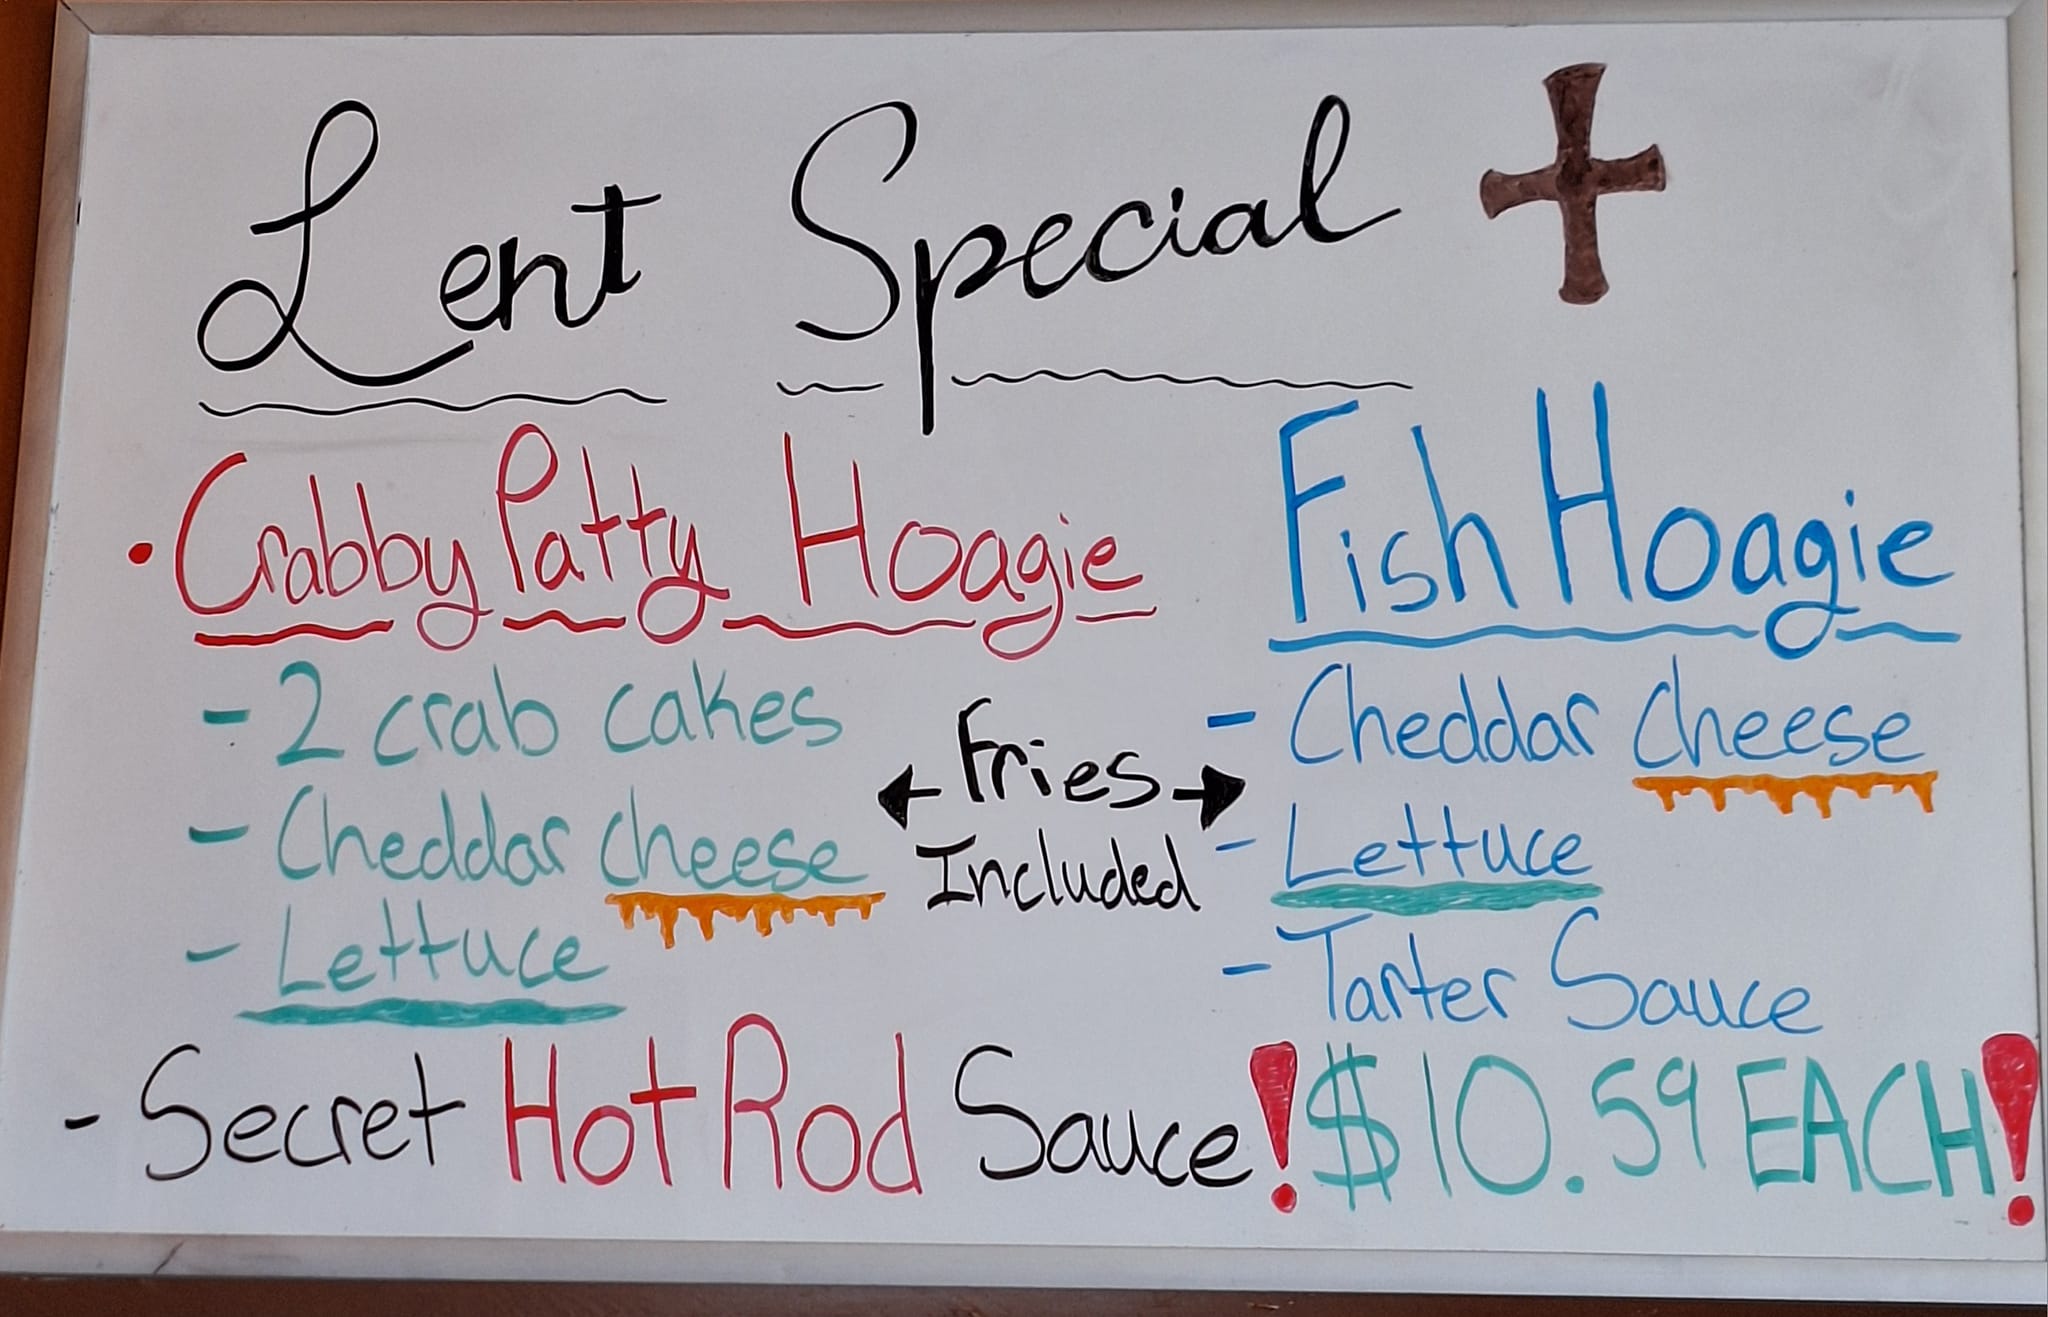 Lent Special
• Crabby Patty Hoagie
- 2 crab cakes
- Cheddar Cheese
- Lettuce
- Secret Hot Rod Sauce!
Fries
Included
Fish Hoagie
- Cheddar Cheese
- Lettuce
- Tarter Sauce
$10.59 EACH!